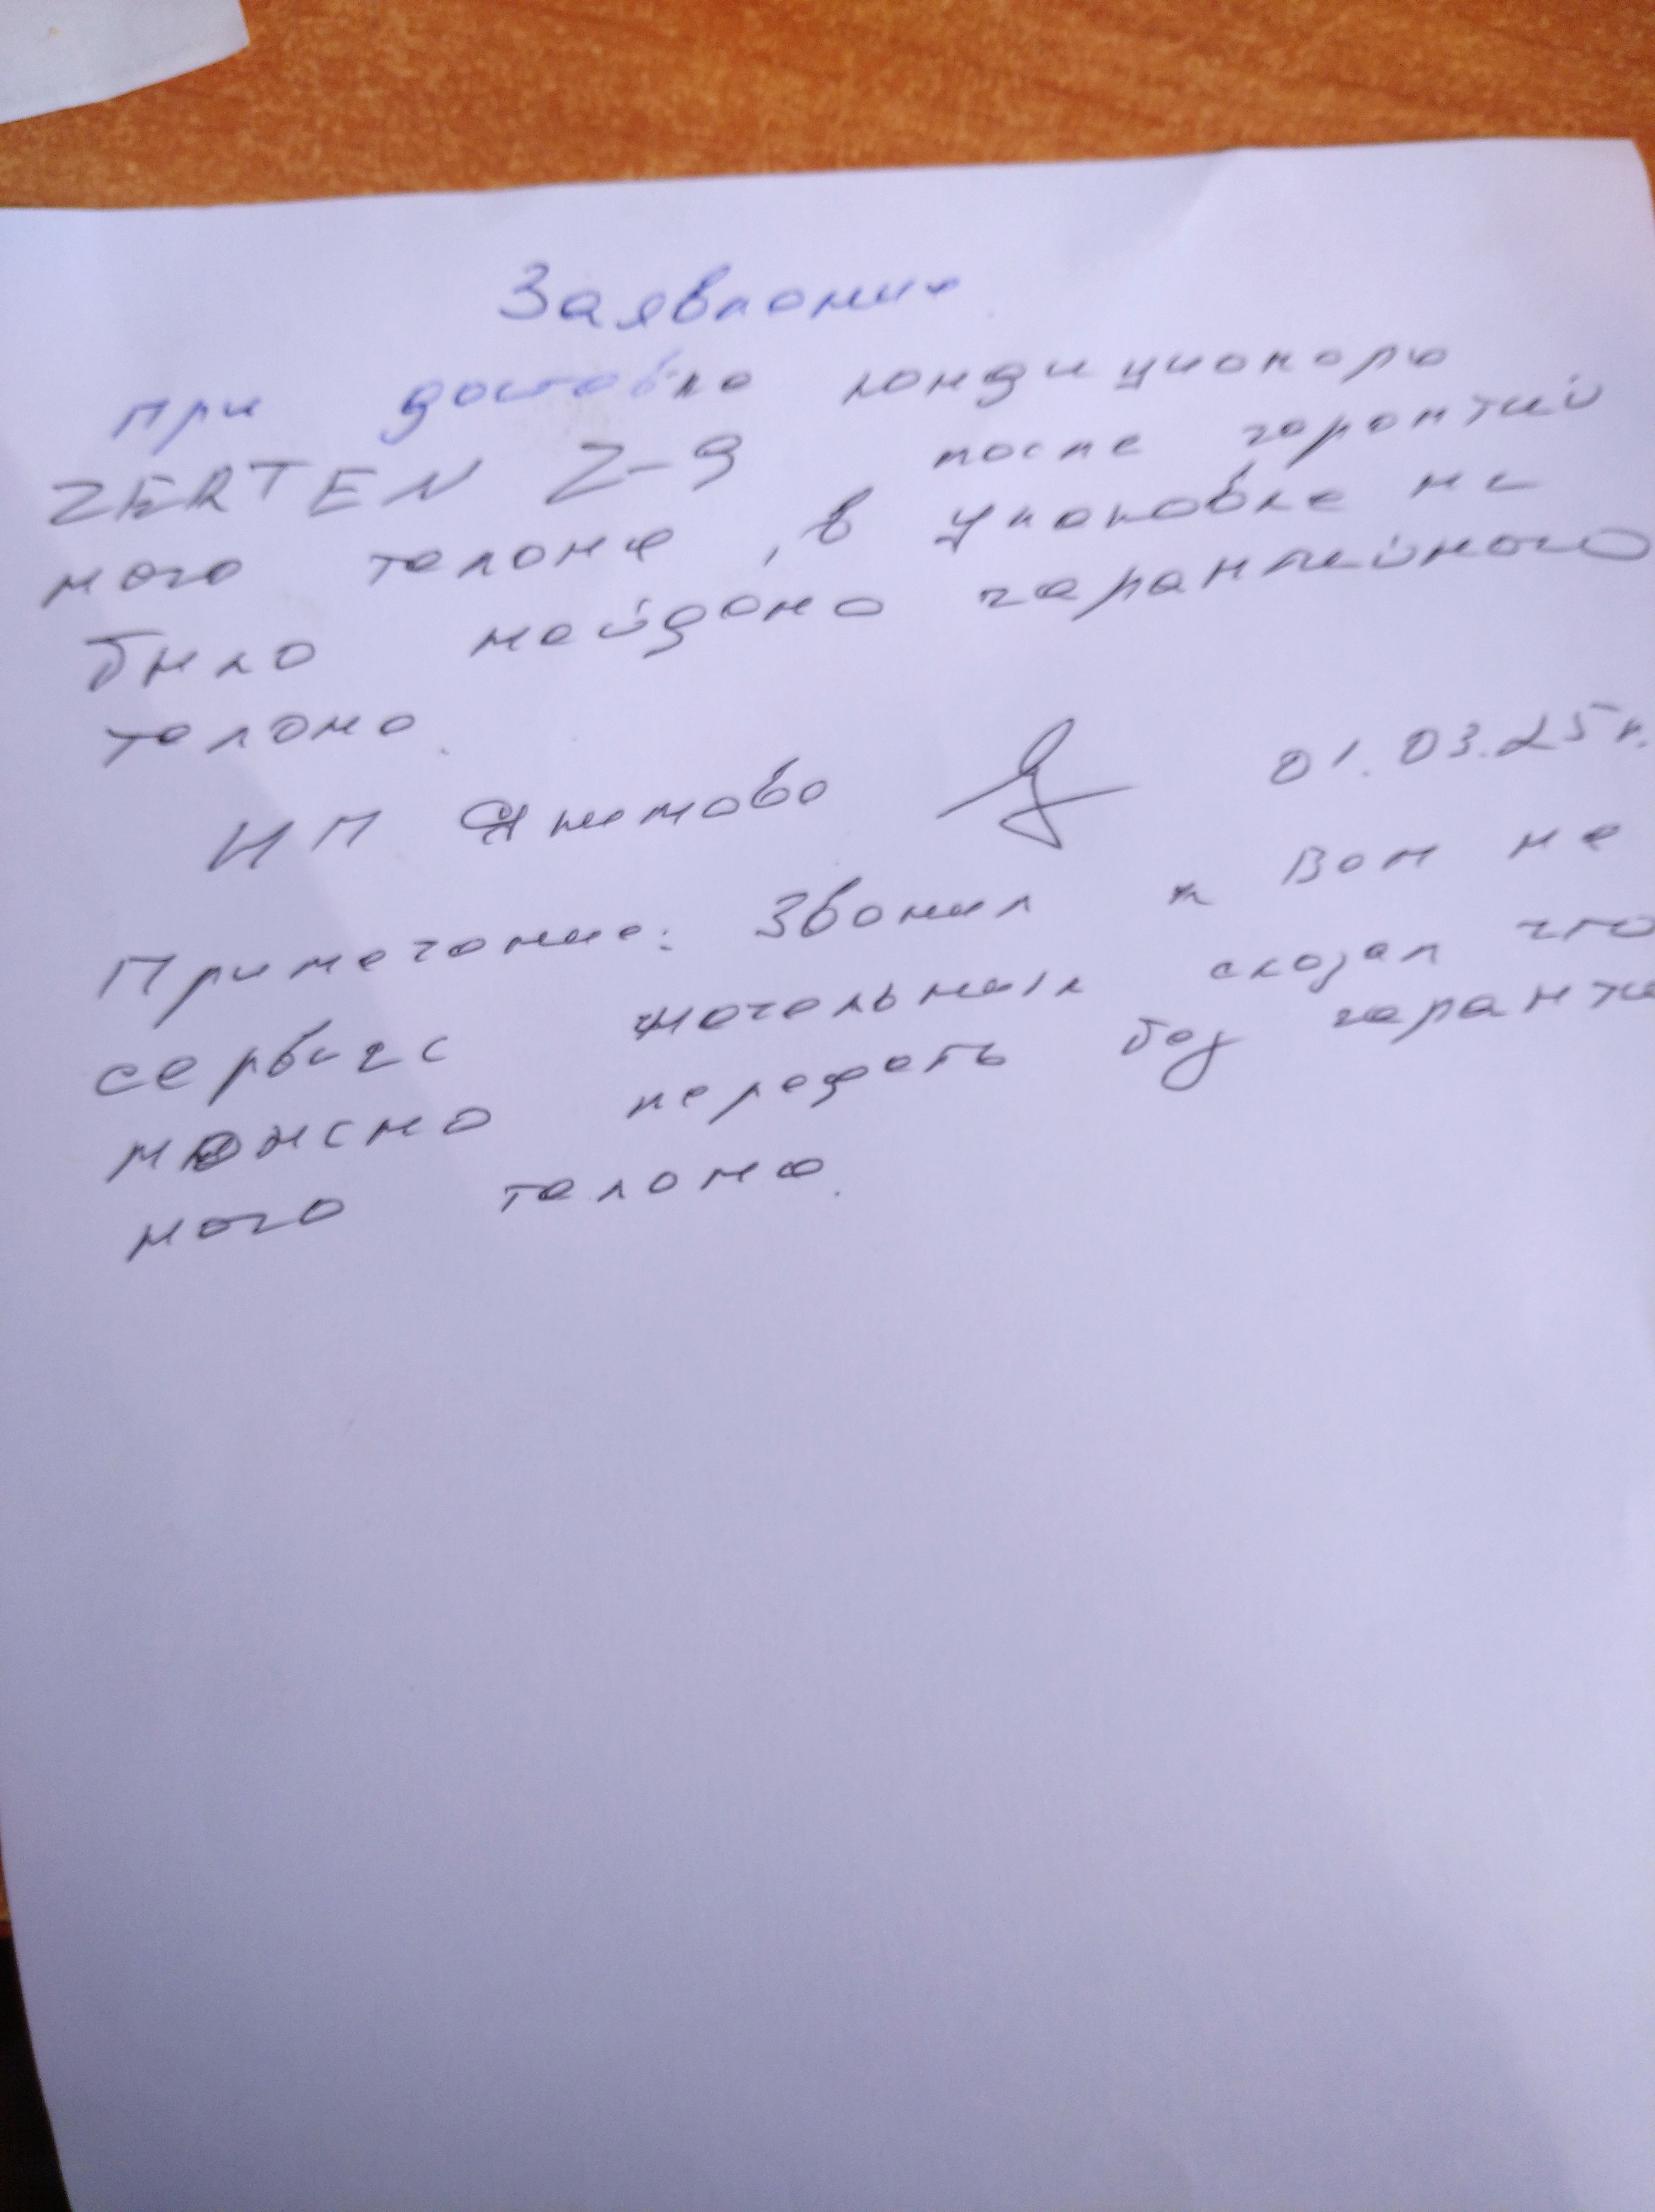 Заявление
при доставке кондиционера
ZERTEN Z-9 после гарантий
ного талона, в упаковке не
было найдено гарантийного
талона.
ИП 01.03.25г.
Примечание: Звонил к Вам не
сервисе начальник сказал что
можно передать без гарантий
ного талона.